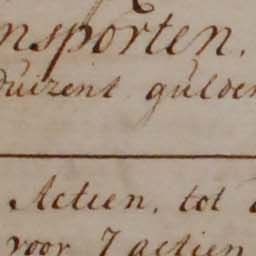 nsporten.
duizent gulden
Actien, tot
voor 7 actien